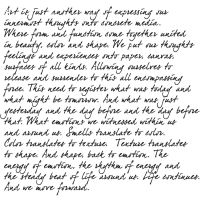 Art is just another way of expressing our
innermost thoughts onto concrete media.
Where form and function come together united
in beauty, color and shape. We put our thoughts
feelings and experiences onto paper, canvas,
surfaces of all kinds. Allowing ourselves to
release and surrender to this all encompassing
force. This need to register what was today and
what might be tomorrow. And what was just
yesterday and the day before and the day before
that. What emotions we witnessed within us
and around us. Smells translate to color.
Color translates to texture. Texture translates
to shape. And shape, back to emotion. The
energy of emotion, the rhythm of energy and
the steady beat of life around us. Life continues.
And we move forward.